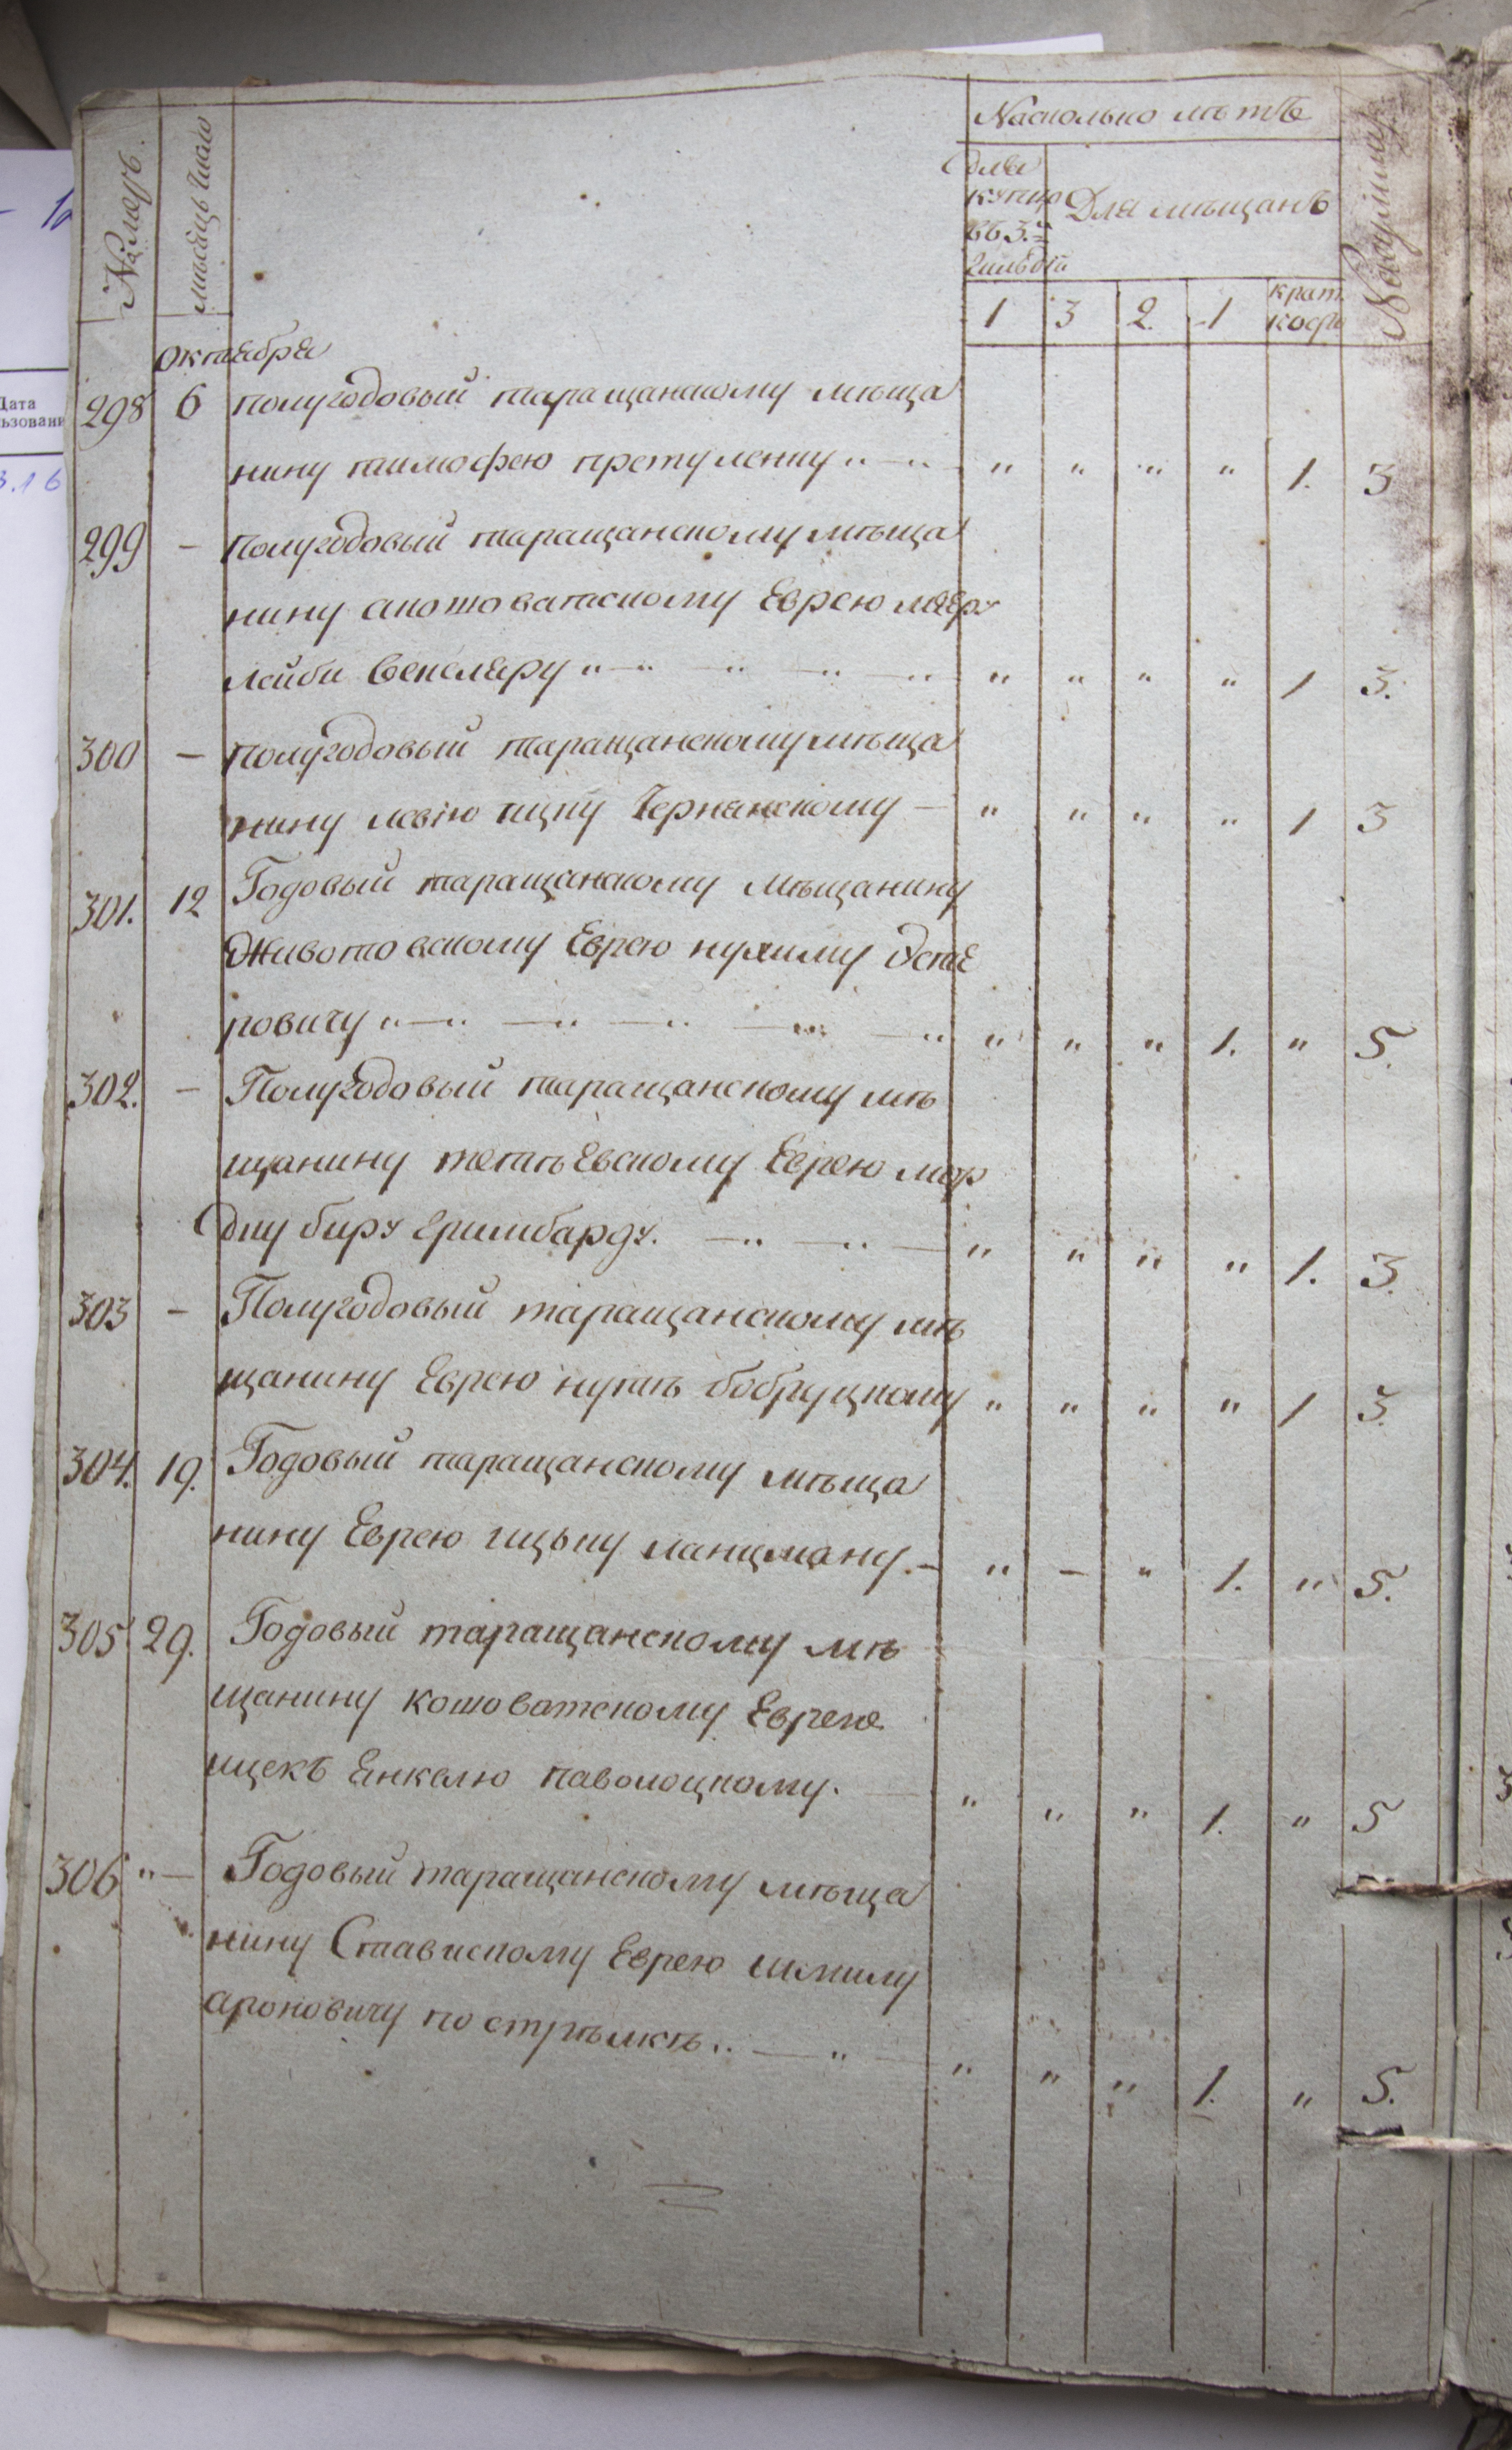 Насколько лѣтъ
Номеръ.
мѣсяцъ число
для купцовъ 3.й гильдіи
Для мѣщанъ
1 3 2. 1 крат коср
Октября
298 6 полугодовый таращанскому мѣща
нину тимофею претуленку „ „ „ „ 1. 3
299 — полугодовый таращанскому мѣща
нину Еврею
лейби векслеру „ „ „ „ 1 3.
300 — полугодовый таращанскому мѣща
нину ицку Чернянскому — „ „ „ „ 1 3
301. 12 Годовый таращанскому мѣщанину
животовскому Еврею нухиму Усте
ровичу „ „ „ „ 1. „ 5.
302. — Полугодовый таращанскому мѣ
щанину тетіевскому Еврею мор
дку беру „ „ „ „ 1. 3.
303 — Полугодовый таращанскому мѣ
щанину Еврею нутѣ бобруцкому „ „ „ „ 1 3.
304. 19. Годовый таращанскому мѣща
нину Еврею ицьку ланцману. — „ — „ 1. „ 5.
305 29. Годовый таращанскому мѣ
щанину кошоватскому Еврею
ицекъ Енкелю паволоцкому. — „ „ „ 1. „ 5
306 „ — Годовый таращанскому мѣща
нину Ставискому Еврею шмилу
ароновичу по стрѣлкѣ „ — „ — „ „ „ 1. „ 5.
Дата